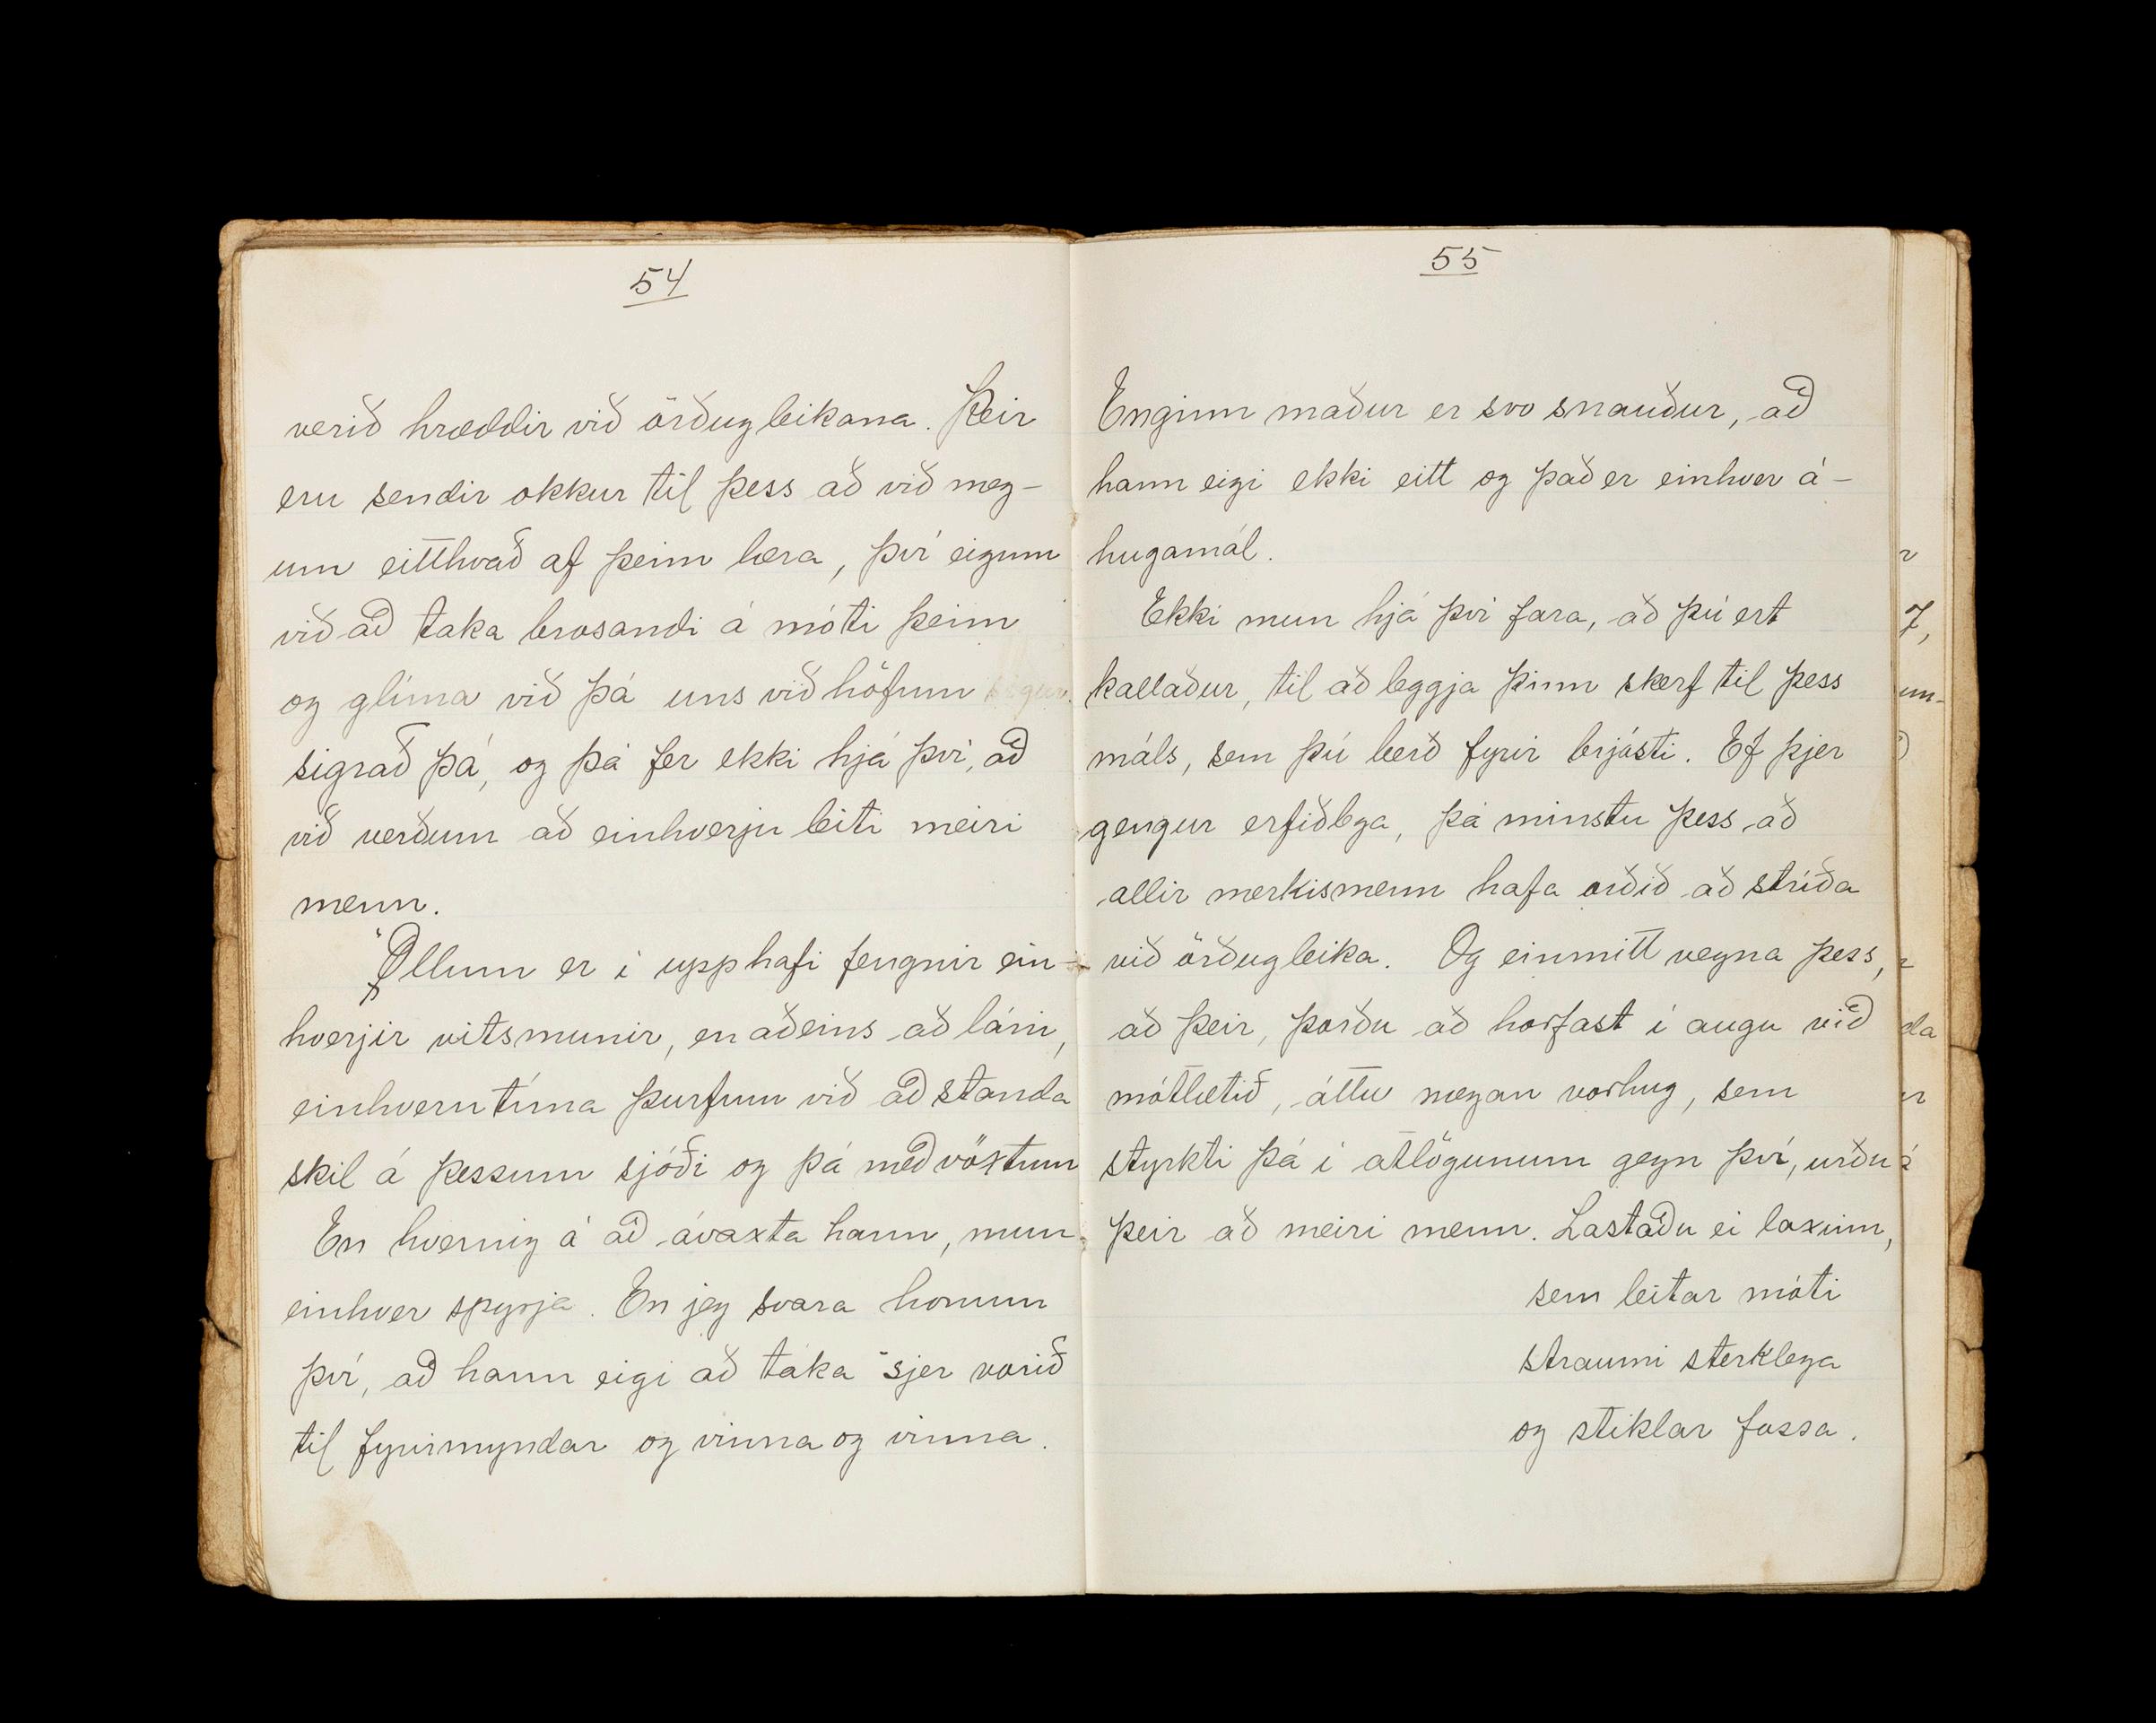 54
verið hræddir við örðugleikana. Þeir
eru sendir okkur til þess að við meg-
um eitthvað af þeim læra, því eigum
við að taka brosandi á móti þeim
og glíma við þá uns við höfum
sigrað þá, og þá fer ekki hjá því, að
við verðum að einhverju leiti meiri
menn.
Öllum er í upphafi fengnir ein-
hverjir vitsmunir, en aðeins að láni,
einhverntíma þurfum við að standa
skil á þessum sjóði og þá með vöxtum
En hvernig á að ávaxta hann, mun
einhver spyrja. En jeg svara honum
því, að hann eigi að taka sjer vorið
til fyrirmyndar og vinna og vinna.
55
Enginn maður er svo snauður, að
hann eigi ekki eitt og það er einhver á-
hugamál.
Ekki mun hjá því fara, að þú ert
kallaður, til að leggja þinn skerf til þess
máls, sem þú berð fyrir brjósti. Ef þjer
gengur erfiðlega, þá minstu þess að
allir merkismenn hafa orðið að stríða
við örðugleika. Og einmitt vegna þess,
að þeir, þorðu að horfast í augu við
mótlætið, áttu nægan vorhug, sem
styrkti þá í atlögunum gegn því, urðu
þeir að meiri menn. Lastaðu ei laxinn,
sem leitar móti
straumi sterklega
og stiklar fossa.